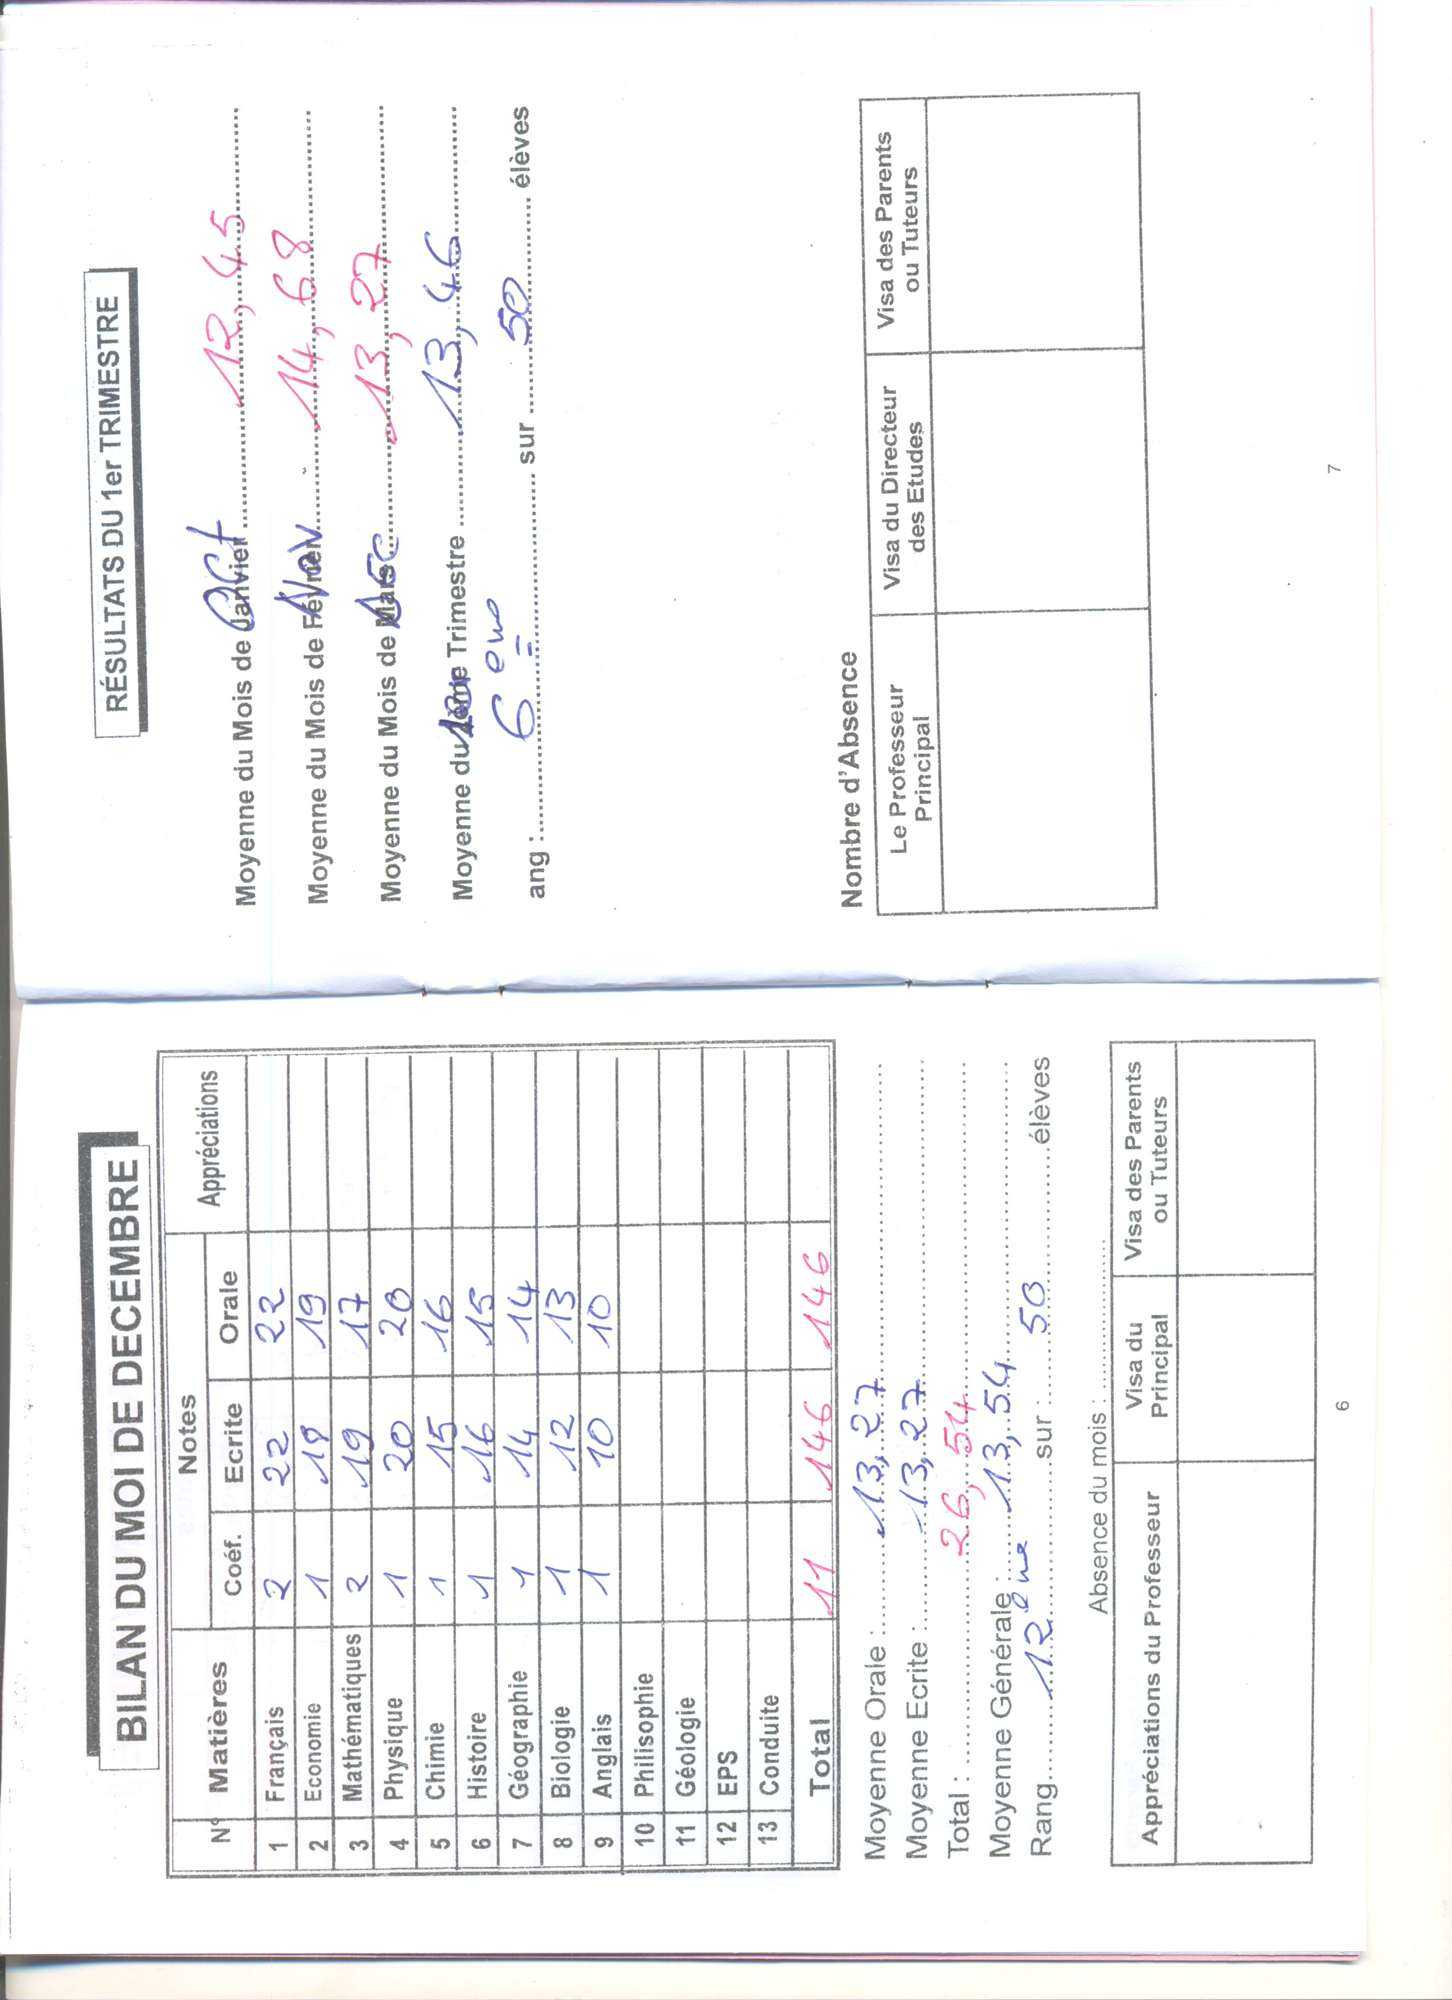 BILAN DU MOI DE DECEMBRE
N° Matières Notes Appréciations
Coéf. Ecrite Orale
1 Français 2 22 22
2 Economie 1 18 19
3 Mathématiques 2 19 17
4 Physique 1 20 20
5 Chimie 1 15 16
6 Histoire 1 16 15
7 Géographie 1 14 14
8 Biologie 1 12 13
9 Anglais 1 10 10
10 Philisophie
11 Géologie
12 EPS
13 Conduite
Total 11 146 146
Moyenne Orale : 13,27
Moyenne Ecrite : 13,27
Total : 26,54
Moyenne Générale : 13,54
Rang 12ème sur : 50 élèves
Absence du mois :
Appréciations du Professeur Visa du Principal Visa des Parents ou Tuteurs
6
RÉSULTATS DU 1er TRIMESTRE
Moyenne du Mois de Janvier Oct 12,45
Moyenne du Mois de Février Nov 14,68
Moyenne du Mois de Mars Dec 13,27
Moyenne du 2ème 1er Trimestre 13,46
ang : 6ème sur 50 élèves
Nombre d'Absence
Le Professeur Principal Visa du Directeur des Etudes Visa des Parents ou Tuteurs
7